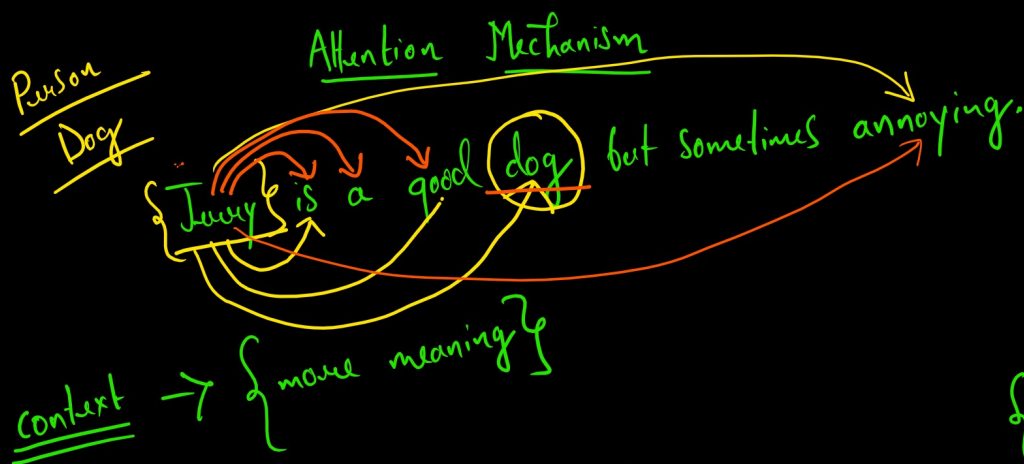 Attention Mechanism
Person
Dog
{Jerry} is a good dog but sometimes annoying.
context → {more meaning}
{